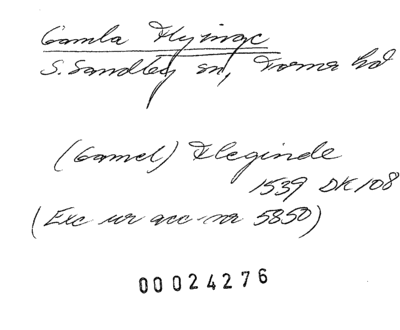 Gamla Flyinge
S. Sandby sn, Torna hd
(Gamel) Fleginde
1539 DK 108
(Exc ur acc. nr 5850)
00024276